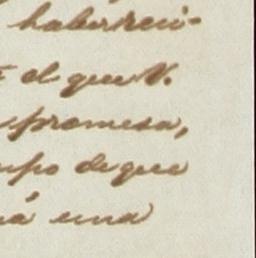 haber reci-
el que V.
promesa,
mpo de que
á una